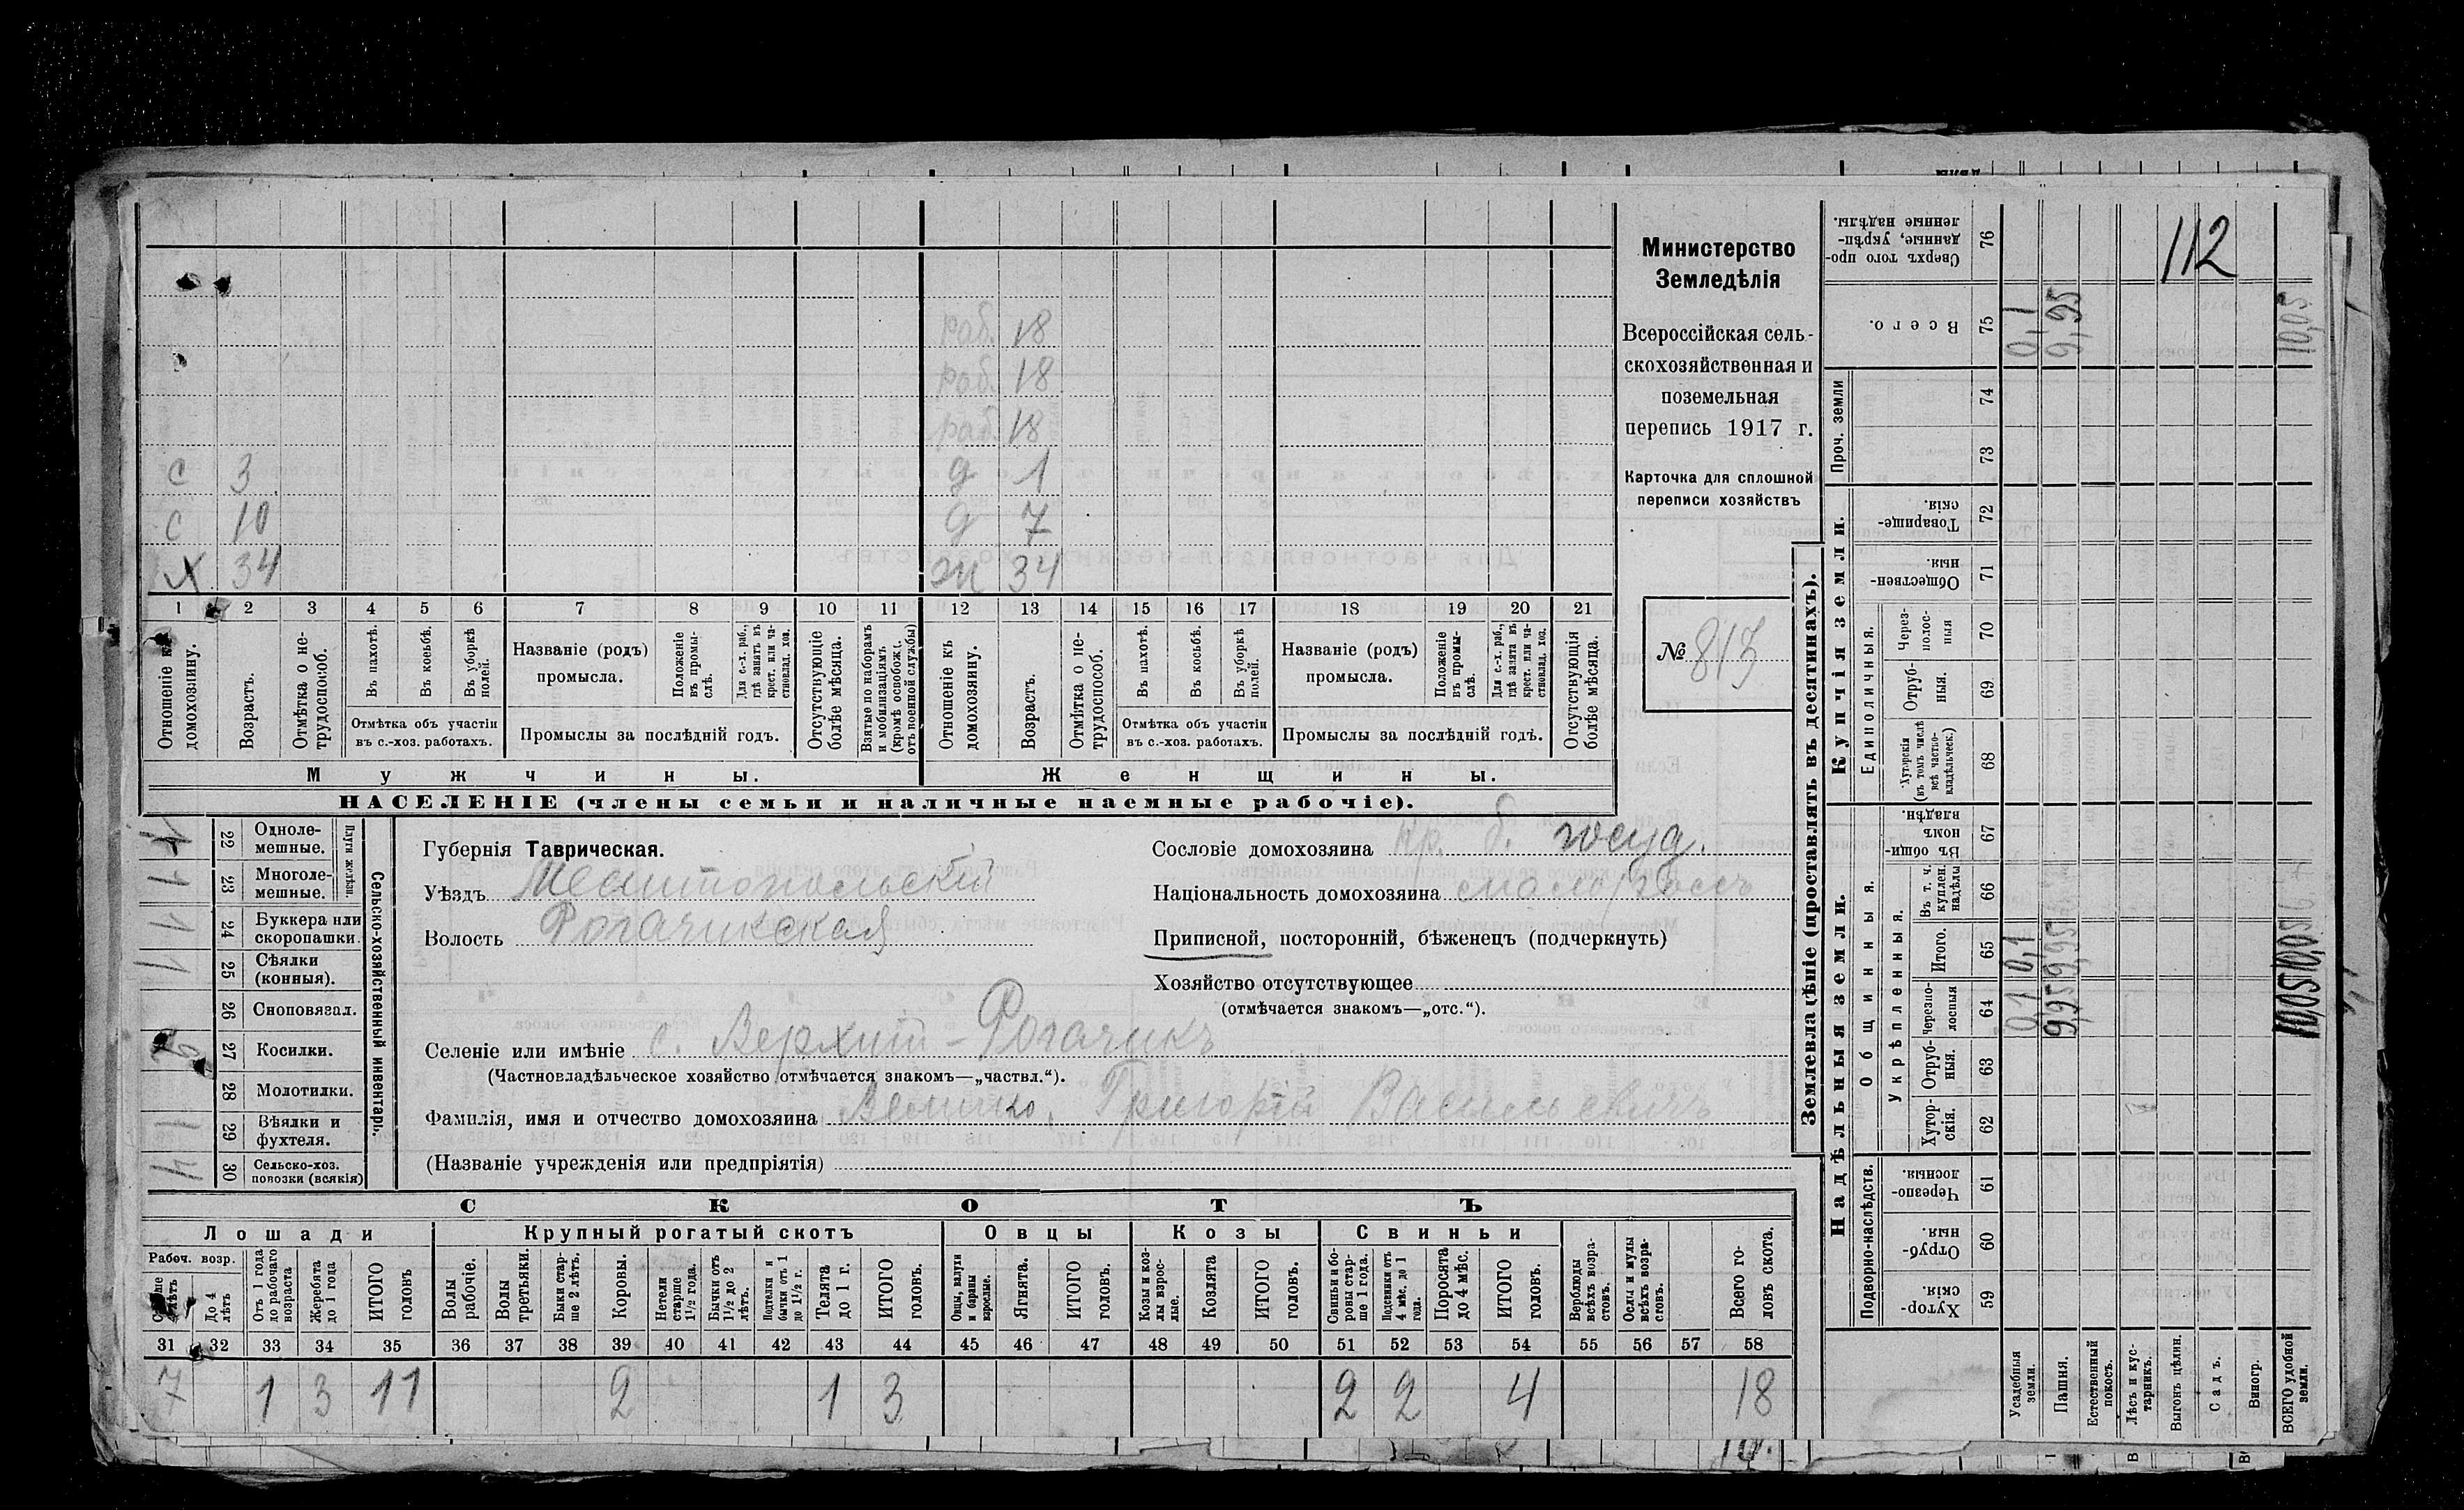 112
Министерство
Земледѣлія
Всероссійская сель-
скохозяйственная и
поземельная
перепись 1917 г.
Карточка для сплошной
переписи хозяйствъ
№ 813
раб. 18
раб. 18
раб. 18
с 3 д 1
с 10 д 7
х 34 ж 34
1 2 3 4 5 6 7 8 9 10 11 12 13 14 15 16 17 18 19 20 21
Отношеніе къ домохозяину.
Возрастъ.
Отмѣтка о не-трудоспособ.
Въ пахотѣ.
Въ косьбѣ.
Въ уборкѣ полей.
Отмѣтка объ участіи
въ с.-хоз. работахъ.
Названіе (родъ)
промысла.
Положеніе въ промы-слѣ.
Для с.-х. раб., гдѣ занятъ въ крест. или ча-стновлад. хоз.
Промыслы за послѣдній годъ.
Отсутствующіе болѣе мѣсяца.
Взятые по наборамъ и мобилизаціямъ (кромѣ освобожд. отъ военной службы)
Отношеніе къ домохозяину.
Возрастъ.
Отмѣтка о не-трудоспособ.
Въ пахотѣ.
Въ косьбѣ.
Въ уборкѣ полей.
Отмѣтка объ участіи
въ с.-хоз. работахъ.
Названіе (родъ)
промысла.
Положеніе въ промы-слѣ.
Для с.-х. раб., гдѣ занята въ крест. или ча-стновлад. хоз.
Промыслы за послѣдній годъ.
Отсутствующія болѣе мѣсяца.
Мужчины. Женщины.
НАСЕЛЕНІЕ (члены семьи и наличные наемные рабочіе).
Сельско-хозяйственный инвентарь.
Плуги желѣзн.
22 Одноле-мешные.
1 23 Многоле-мешные.
1 24 Буккера или скоропашки.
1 25 Сѣялки (конныя).
26 Сноповязал.
27 Косилки.
28 Молотилки.
1 29 Вѣялки и фухтеля.
4 30 Сельско-хоз. повозки (всякія)
Губернія Таврическая.
Уѣздъ Мелитопольскій
Волость Рогачикская
Сословіе домохозяина пр. б. госуд.
Національность домохозяина малороссъ
Приписной, посторонній, бѣженецъ (подчеркнуть)
Хозяйство отсутствующее
(отмѣчается знакомъ—„отс.“).
Селеніе или имѣніе с. Верхній-Рогачикъ
(Частновладѣльческое хозяйство отмѣчается знакомъ—„частвл.“).
Фамилія, имя и отчество домохозяина Величко, Григорій Васильевичъ
(Названіе учрежденія или предпріятія)
СКОТЪ
Лошади Крупный рогатый скотъ Овцы Козы Свиньи
Рабоч. возр.
До 4 лѣтъ
Отъ 1 года до рабочаго возраста
Жеребята до 1 года
ИТОГО головъ
Волы рабочіе.
Волы третьяки.
Быки стар-ше 2 лѣтъ.
Коровы.
Нетели старше 1½ года.
Бычки отъ 1½ до 2 лѣтъ.
Подтелки и бычки отъ 1 до 1½ г.
Телята до 1 г.
ИТОГО головъ.
Овцы, валухи и бараны взрослые.
Ягнята.
ИТОГО головъ.
Козы и коз-лы взрос-лые.
Козлята
ИТОГО головъ.
Свиньи и бо-ровы стар-ше 1 года.
Подсвинки отъ 4 мѣс. до 1 года.
Поросята до 4 мѣс.
ИТОГО головъ.
Верблюды всѣхъ возра-стовъ.
Ослы и мулы всѣхъ возра-стовъ.
Всего го-ловъ скота.
31 32 33 34 35 36 37 38 39 40 41 42 43 44 45 46 47 48 49 50 51 52 53 54 55 56 57 58
7 1 3 11 2 1 3 2 2 4 18
Землевладѣніе (проставлять въ десятинахъ).
Надѣльныя земли. Купчія земли. Проч. земли
Подворно-наслѣдств.
Общинныя.
Укрѣпленныя.
Единоличныя.
59 Хутор-скія.
60 Отруб-ныя.
61 Черезпо-лосныя.
62 Хутор-скія.
63 Отруб-ныя.
64 Черезпо-лосныя 0,1 9,95 10,05
65 Итого. 0,1 9,95 10,05
66 Въ т. ч. куплен. надѣлы
67 Въ общи-номъ владѣн.
68 Хуторскія (въ томъ числѣ всѣ частно-владѣльческ.)
69 Отруб-ныя.
70 Через-полос-ныя
71 Обществен-ныя.
72 Товарище-скія.
73
74
75 Всего. 0,1 9,95 10,05
76 Сверхъ того про-данные, укрѣп-ленные надѣлы.
Усадебныя земли.
Пашня.
Естественный покосъ.
Лѣсъ и кус-тарникъ.
Выгонъ цѣлин.
Садъ.
Виногр.
ВСЕГО удобной земли.